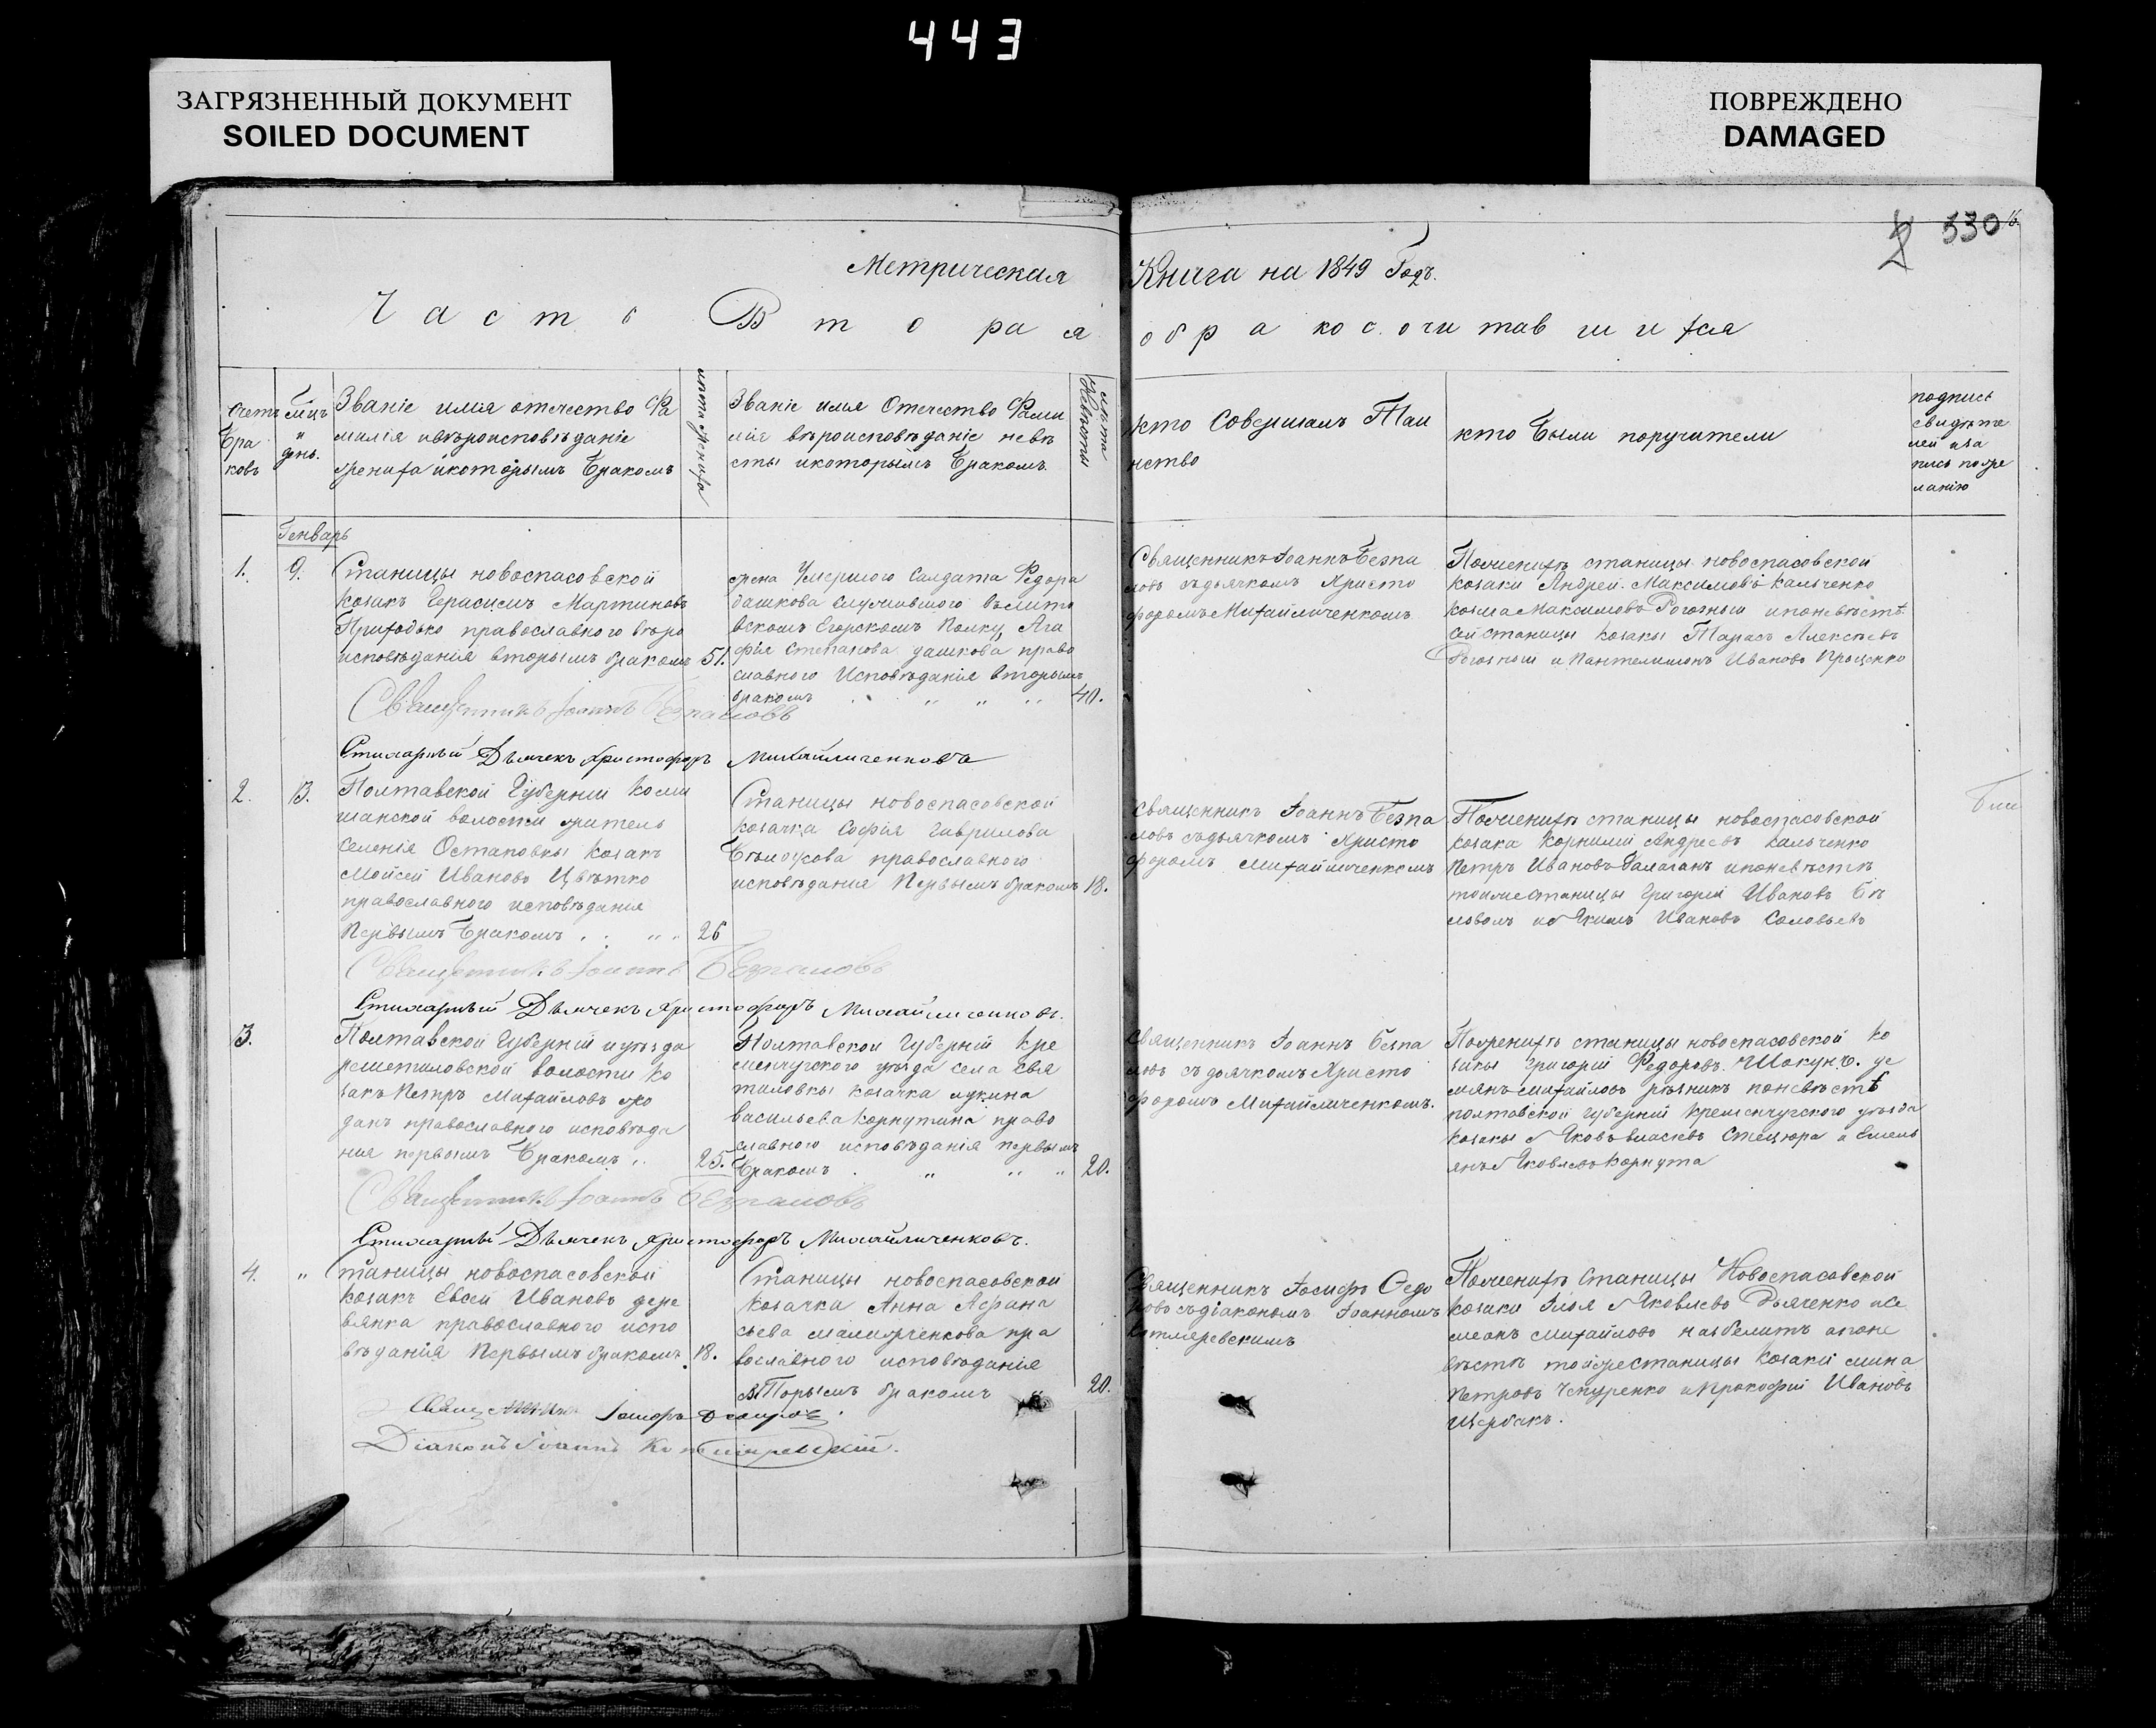 443
ЗАГРЯЗНЕННЫЙ ДОКУМЕНТ
SOILED DOCUMENT
ПОВРЕЖДЕНО
DAMAGED
330
Метрическая Книга на 1849 Годъ.
Часть Вторая о бракосочитавшихся
Счетъ Браковъ
М҃цъ и день.
Званіе имя отечество Фа
милія ивѣроисповѣданіе
жениха икоторымъ Бракомъ
лѣта жениха
Званіе имя Отечество Фами
лія вѣроисповѣданіе невѣ
сты икоторымъ Бракомъ
лѣта Невѣсты
кто Совершалъ Таи
нство
кто были поручители
подпись
свидѣте
лей иза
пись пожре
ланію
Генварь
1.
9.
Станицы новоспасовской
козакъ Герасимъ Мартиновъ
Приходько православного вѣро
исповѣданія вторымъ бракомъ 51.
жена Умершого Салдата Федора
дашкова Служившого вълито
вскомъ Егорскомъ Полку, Ага
фія Степанова дашкова право
славного Исповѣданія вторымъ
бракомъ 40.
Священникъ Іоаннъ Безпа
ловъ съдьячкомъ Христо
форомъ Михайличенкомъ
Пожениху станицы новоспасовской
козаки Андрей Максимовъ Кальченко
козма Максимовъ Рогозный ипоневѣстѣ
сей станицы козаки Тарасъ Алексѣевъ
Рогозный и Пантелимонъ Ивановъ Проценко
Священникъ Іоаннъ Безпаловъ
Стихарный Дьячекъ Христофоръ Михайличенковъ
2.
13.
Полтавской Губерніи Коми
шанской волости житель
Селенія Остаповки Козакъ
Мойсей Ивановъ Цвѣтко
православного исповѣданія
Первымъ Бракомъ 26
Станицы новоспасовской
козачка Софія Гаврилова
Бѣлоусова православного
исповѣданія Первымъ бракомъ 18.
Священникъ Іоаннъ Безпа
ловъ съдьячкомъ Христо
форомъ Михайличенкомъ
Пожениху станицы новоспасовской
козака Корнилій Андреевъ Кальченко
Петръ Ивановъ Галаганъ ипоневѣстѣ
тойже Станицы Григорій Ивановъ Бѣ
Якимъ Ивановъ Соловьевъ
Священникъ Іоаннъ Безпаловъ
Стихарный Дьячекъ Христофоръ Михайличенковъ.
3.
Полтавской Губерніи иуѣзда
решетиловской волости ко
закъ Петръ Михайловъ жо
данъ православного исповѣда
нія первымъ Бракомъ 25.
Полтавской Губерніи Кре
менчугского уѣзда села Свя
тиловки козачка лукина
васильева Корнутина право
славного исповѣданія первымъ
Бракомъ 20.
Священникъ Іоаннъ Безпа
ловъ съдьячкомъ Христо
форомъ Михайличенкомъ.
Пожениху станицы новоспасовской ко
заки Григорій Федоровъ Шокунъ. де
мянъ Михайловъ рѣзникъ поневѣстѣ
полтавской губерній кременчугского уѣзда
козаки Яковъ власіевъ Стецюра и Емель
янъ Яковлевъ Корнута
Священникъ Іоаннъ Безпаловъ
Стихарный Дьячекъ Христофоръ Михайличенковъ.
4.
"
станицы новоспасовской
козакъ Евсей Ивановъ дере
вянка православного испо
вѣданія Первымъ бракомъ 18.
Станицы новоспасовской
козачка Анна Афана
сьева пра
вославного исповѣданія
вТорымъ бракомъ 20.
Священникъ Іосифъ Федо
ровъ съдіакономъ Іоанномъ
Котляревскимъ
Пожениху Станицы Новоспасовской
козаки Илья Яковлевъ Дьяченко иСе
менъ Михайловъ апоне
вѣстѣ тойжестаницы козаки мина
Петровъ Чепуренко иПрокофій Ивановъ
Щербакъ.
Священникъ Іосифъ Федоровъ.
Діаконъ Іоаннъ Котляревскій.